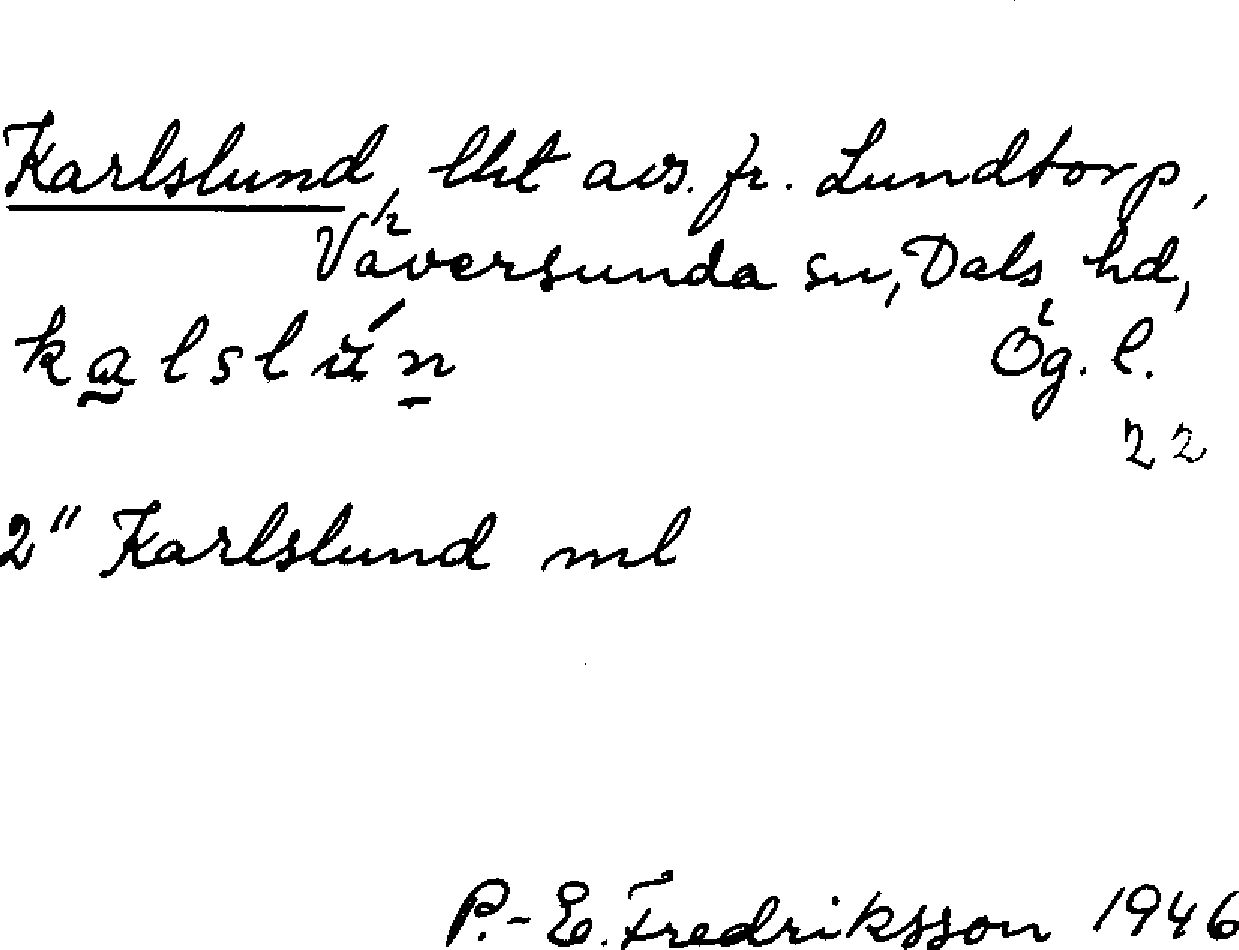 Karlslund, lht avs. fr. Lundtorp,
Väversunda sn, Dals hd,
kalslún Ög. l.
22
2" Karlslund ml
P.-E. Fredriksson 1946